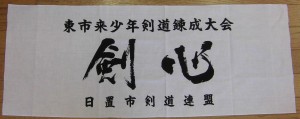 東市来少年剣道錬成大会
剣心
日置市剣道連盟